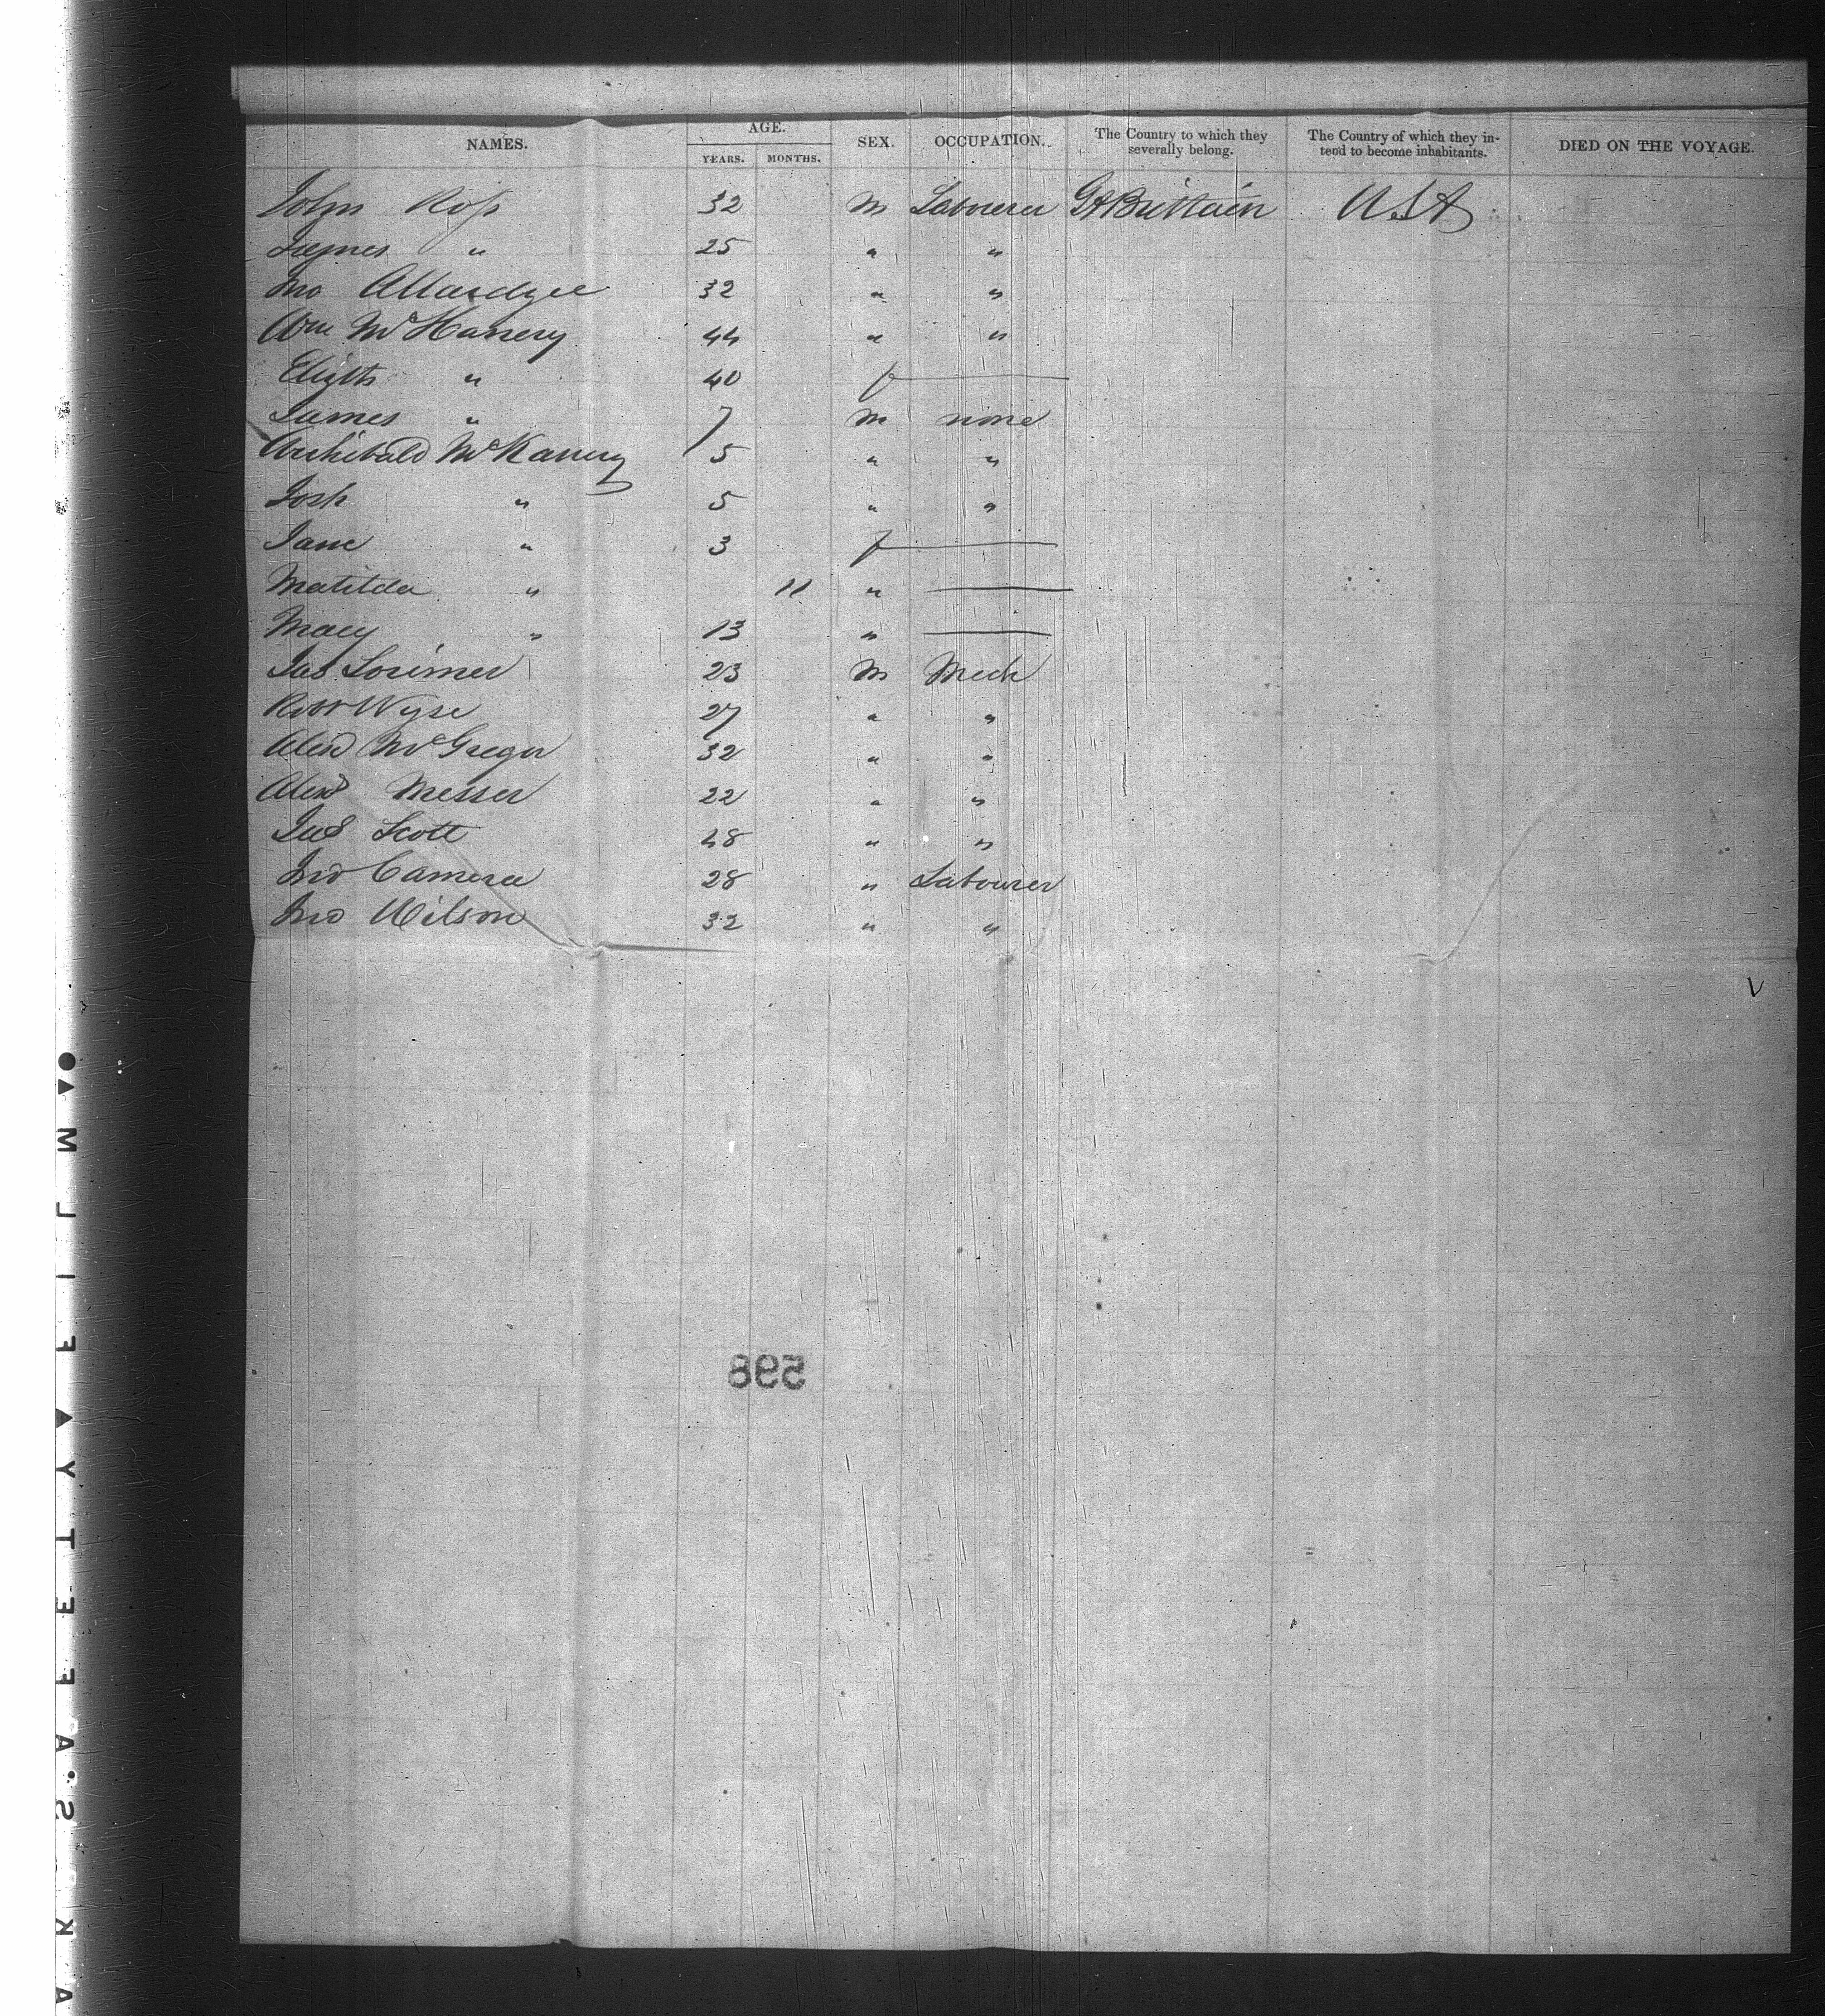 NAMES. AGE. YEARS. MONTHS. SEX. OCCUPATION. The Country to which they severally belong. The Country of which they intend to become inhabitants. DIED ON THE VOYAGE.
John Ross 32 M Labourer Gt Brittain U.S.A
James " 25 " "
Jno Allardyce 32 " "
Wm McHanery 44 " "
Elizth " 40 f
James " 7 M none
Archibald McKanery 5 " "
Josh " 5 " "
Jane " 3 f
Matilda " 11 "
Mary " 13 "
Jas Lorimer 23 M Mech
Robt Wyse 27 " "
Alexd McGregor 32 " "
Alexd Messer 22 " "
Jas Scott 48 " "
Jno Cameron 28 " Labourer
Jno Wilson 32 " "
598
SAFETY FILM